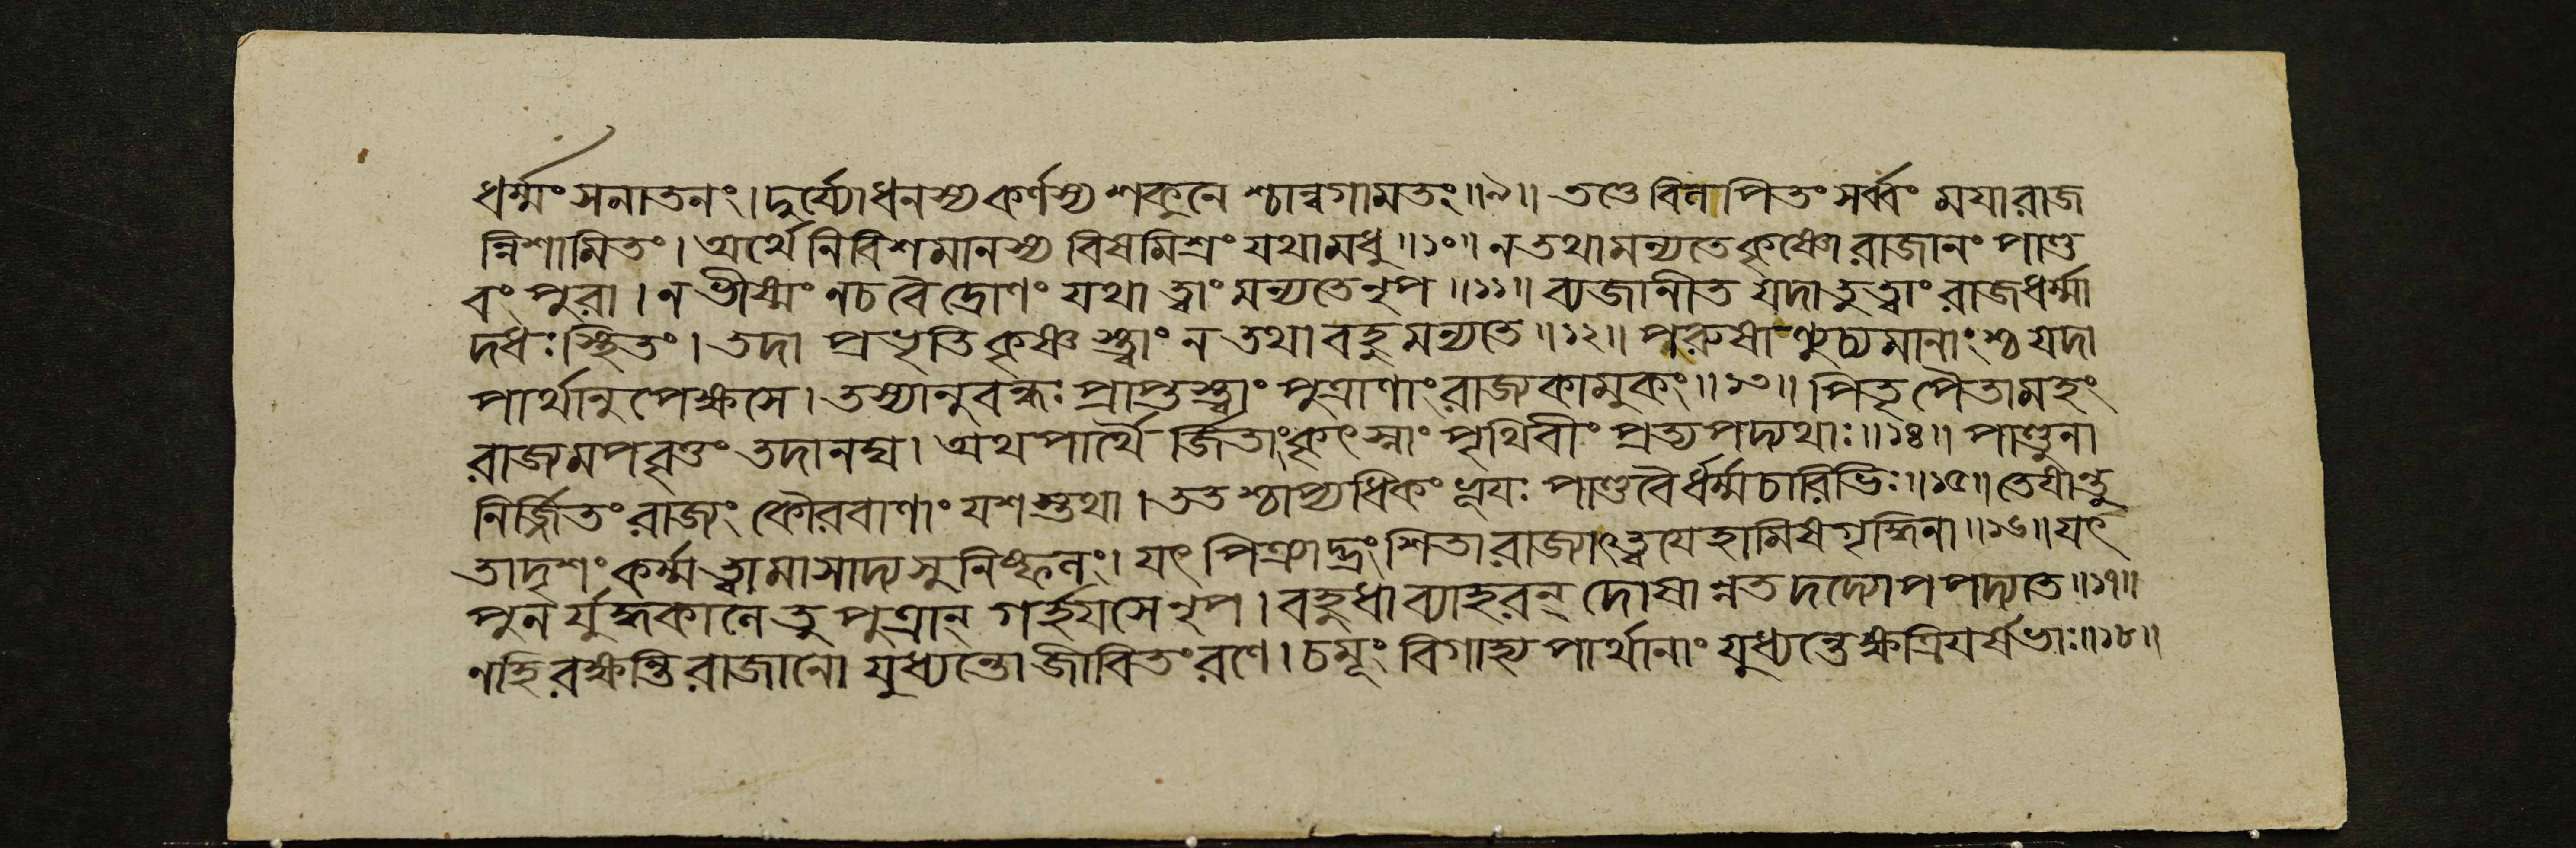 ধর্ম্মং সনাতনং। দুর্য্যোধনস্য কর্ণস্য শকুনেশ্চান্বগামতং॥৯॥ তত্তে বিলাপিতং সর্ব্বং ময়া রাজ
ন্নিশামিতং। অর্থে নিবিশমানস্য বিষমিশ্রং যথা মধু॥১০॥ ন তথা মন্যতে কৃষ্ণো রাজানং পাণ্ড
বং পুরা। ন ভীষ্মং ন চ বৈ দ্রোণং যথা ত্বাং মন্যতে নৃপ॥১১॥ ব্যজানীত যদা তু ত্বাং রাজধর্ম্মা
দধঃস্থিতং। তদা প্রভৃতি কৃষ্ণস্ত্বাং ন তথা বহু মন্যতে॥১২॥ পুরুষাণ্যুচ্যমানাংশ্চ যদা
পার্থানুপেক্ষসে। তস্যানুবন্ধঃ প্রাপ্তস্ত্বাং পুত্রাণাং রাজ্যকামুকং॥১৩॥ পিতৃপৈতামহং
রাজ্যমপবৃত্তং তদানঘ। অথ পার্থৈর্জিতাং কৃৎস্নাং পৃথিবীং প্রত্যপদ্যথাঃ॥১৪॥ পাণ্ডুনা
নির্জ্জিতং রাজ্যং কৌরবাণাং যশস্তথা। ততশ্চাপ্যধিকং ভূয়ঃ পাণ্ডবৈর্ধর্ম্মচারিভিঃ॥১৫॥ তেষান্তু
তাদৃশং কর্ম্ম ত্বামাসাদ্য সুনিষ্ফলং। যৎ পিত্র্যাদ্ভ্রংশিতা রাজ্যাৎ ত্বয়েহামিষগৃদ্ধিনা॥১৬॥ যৎ
পুনর্যুদ্ধকালে তু পুত্রান্ গর্হয়সে নৃপ। বহুধা ব্যাহরন্ দোষান্ন তদদ্যোপপদ্যতে॥১৭॥
নহি রক্ষন্তি রাজানো যুধ্যন্তো জীবিতং রণে। চমূং বিগাহ্য পার্থানাং যুধ্যন্তে ক্ষত্রিয়র্ষভাঃ॥১৮॥